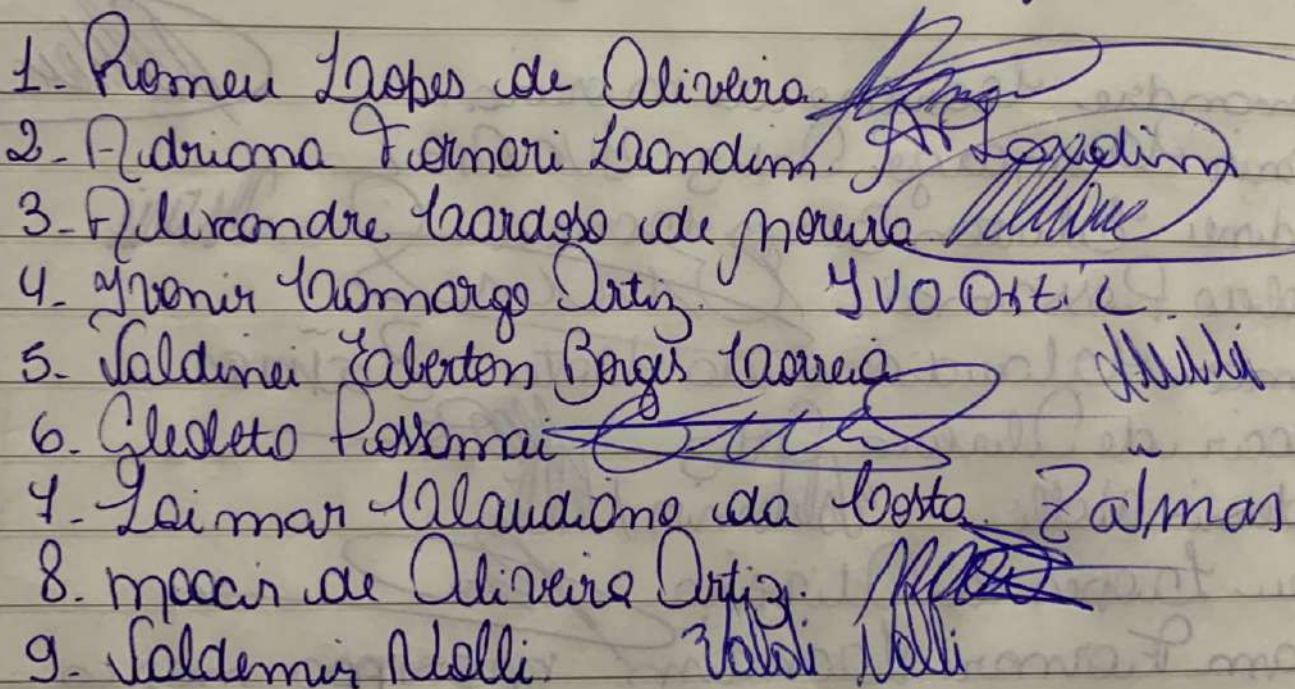 1- Romeu Lopes de Oliveira.
2- Adriana Fornari Landim. AP Landim
3- Alexandre Cardoso de Moreira
4- Ivenir Camargo Ortiz. IVO Ortiz
5- Valdinei Eberton Borges Correia
6. Cledeto Possamai
7- Laimar Claudiano da Costa. Zalmar
8. moacir de Oliveira Ortiz.
9. Valdemir Nolli. Valdi Nolli